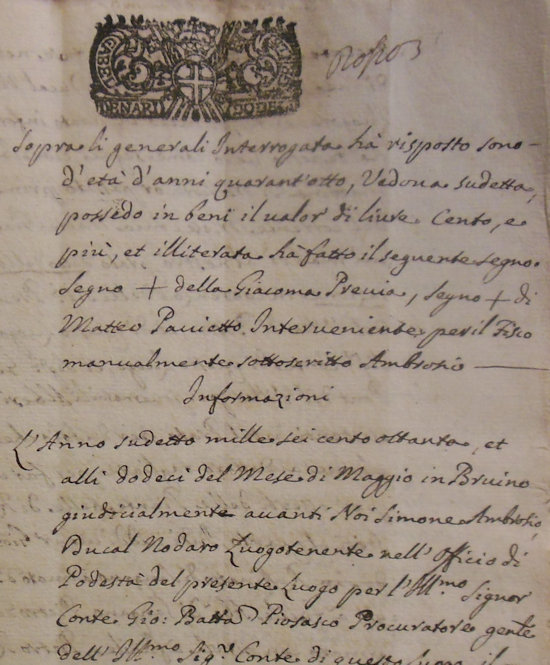 GABEL
DENARI SODEC
Sopra li generali Interrogata hà risposto sono
d'età d'anni quarant'otto, Vedova sudetta,
possedo in beni il valor di livre Cento, e
più, et illiterata hà fatto il seguente segno.
Segno + della Giacoma Previa, segno + di
Matteo Pavietto Interveniente per il Fisco
manualmente sottoscritto Ambrosio
Informazioni
L'Anno sudetto mille sei cento ottanta, et
alli dodeci del Mese di Maggio in Bruino
giudicialmente avanti Noi Simone Ambrosio,
Ducal Nodaro Luogotenente nell'officio di
Podestà del presente Luogo per l'Ill.mo Signor
Conte Gio: Batta Piosasco Procuratore gen.te
dell'Ill.mo Sig.r Conte di questo Luogo il